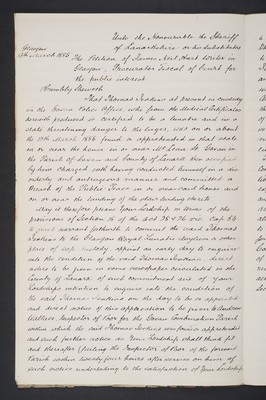 Unto the Honourable the Sheriff
of Lanarkshire or his Substitutes
Glasgow
March 1886
The Petition of James Neil Hart Writer in
Glasgow, Procurator Fiscal of Court for
the public interest
Humbly Sheweth
That Thomas Jenkins at present in custody
in the Govan Police Office who from the Medical Certificates
herewith produced is certified to be a lunatic and in a
state threatening danger to the lieges, was on or about
the March 1886 found or apprehended in that state
in or near the house in or near Govan in
the Parish of Govan and County of Lanark then occupied
by him charged with having conducted himself in a dis
orderly and outrageous manner and committed a
Breach of the Public Peace in or near said house and
on or near the landing of the stair leading thereto
May it therefore please your Lordship in terms of the
provisions of Section 15 of the Act 25 & 26 Vic. Cap 54
to grant warrant forthwith to commit the said Thomas
Jenkins to the Glasgow Royal Lunatic Asylum or other
place of safe custody, appoint an early day to enquire
into the condition of the said Thomas Jenkins, direct
notice to be given in some newspaper circulated in the
County of Lanark of said commitment and of your
Lordships intention to enquire into the condition of
the said Thomas Jenkins on the day to be so appointed
and direct notice of this application to be given to Andrew
Wallace Inspector of Poor for the Govan Combination Parish
within which the said Thomas Jenkins was found or apprehended
and such further notice as Your Lordship shall think fit
and thereafter failing the Inspector of Poor of the foresaid
Parish within twenty four hours after service on him of
such notice undertaking to the satisfaction of Your Lordship